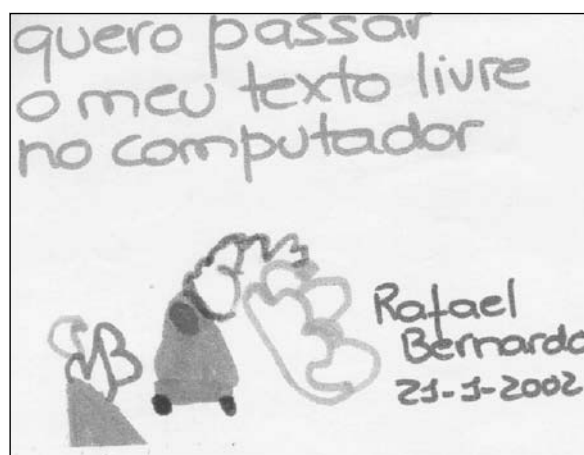 quero passar
o meu texto livre
no computador
Rafael
Bernardo
21-1-2002